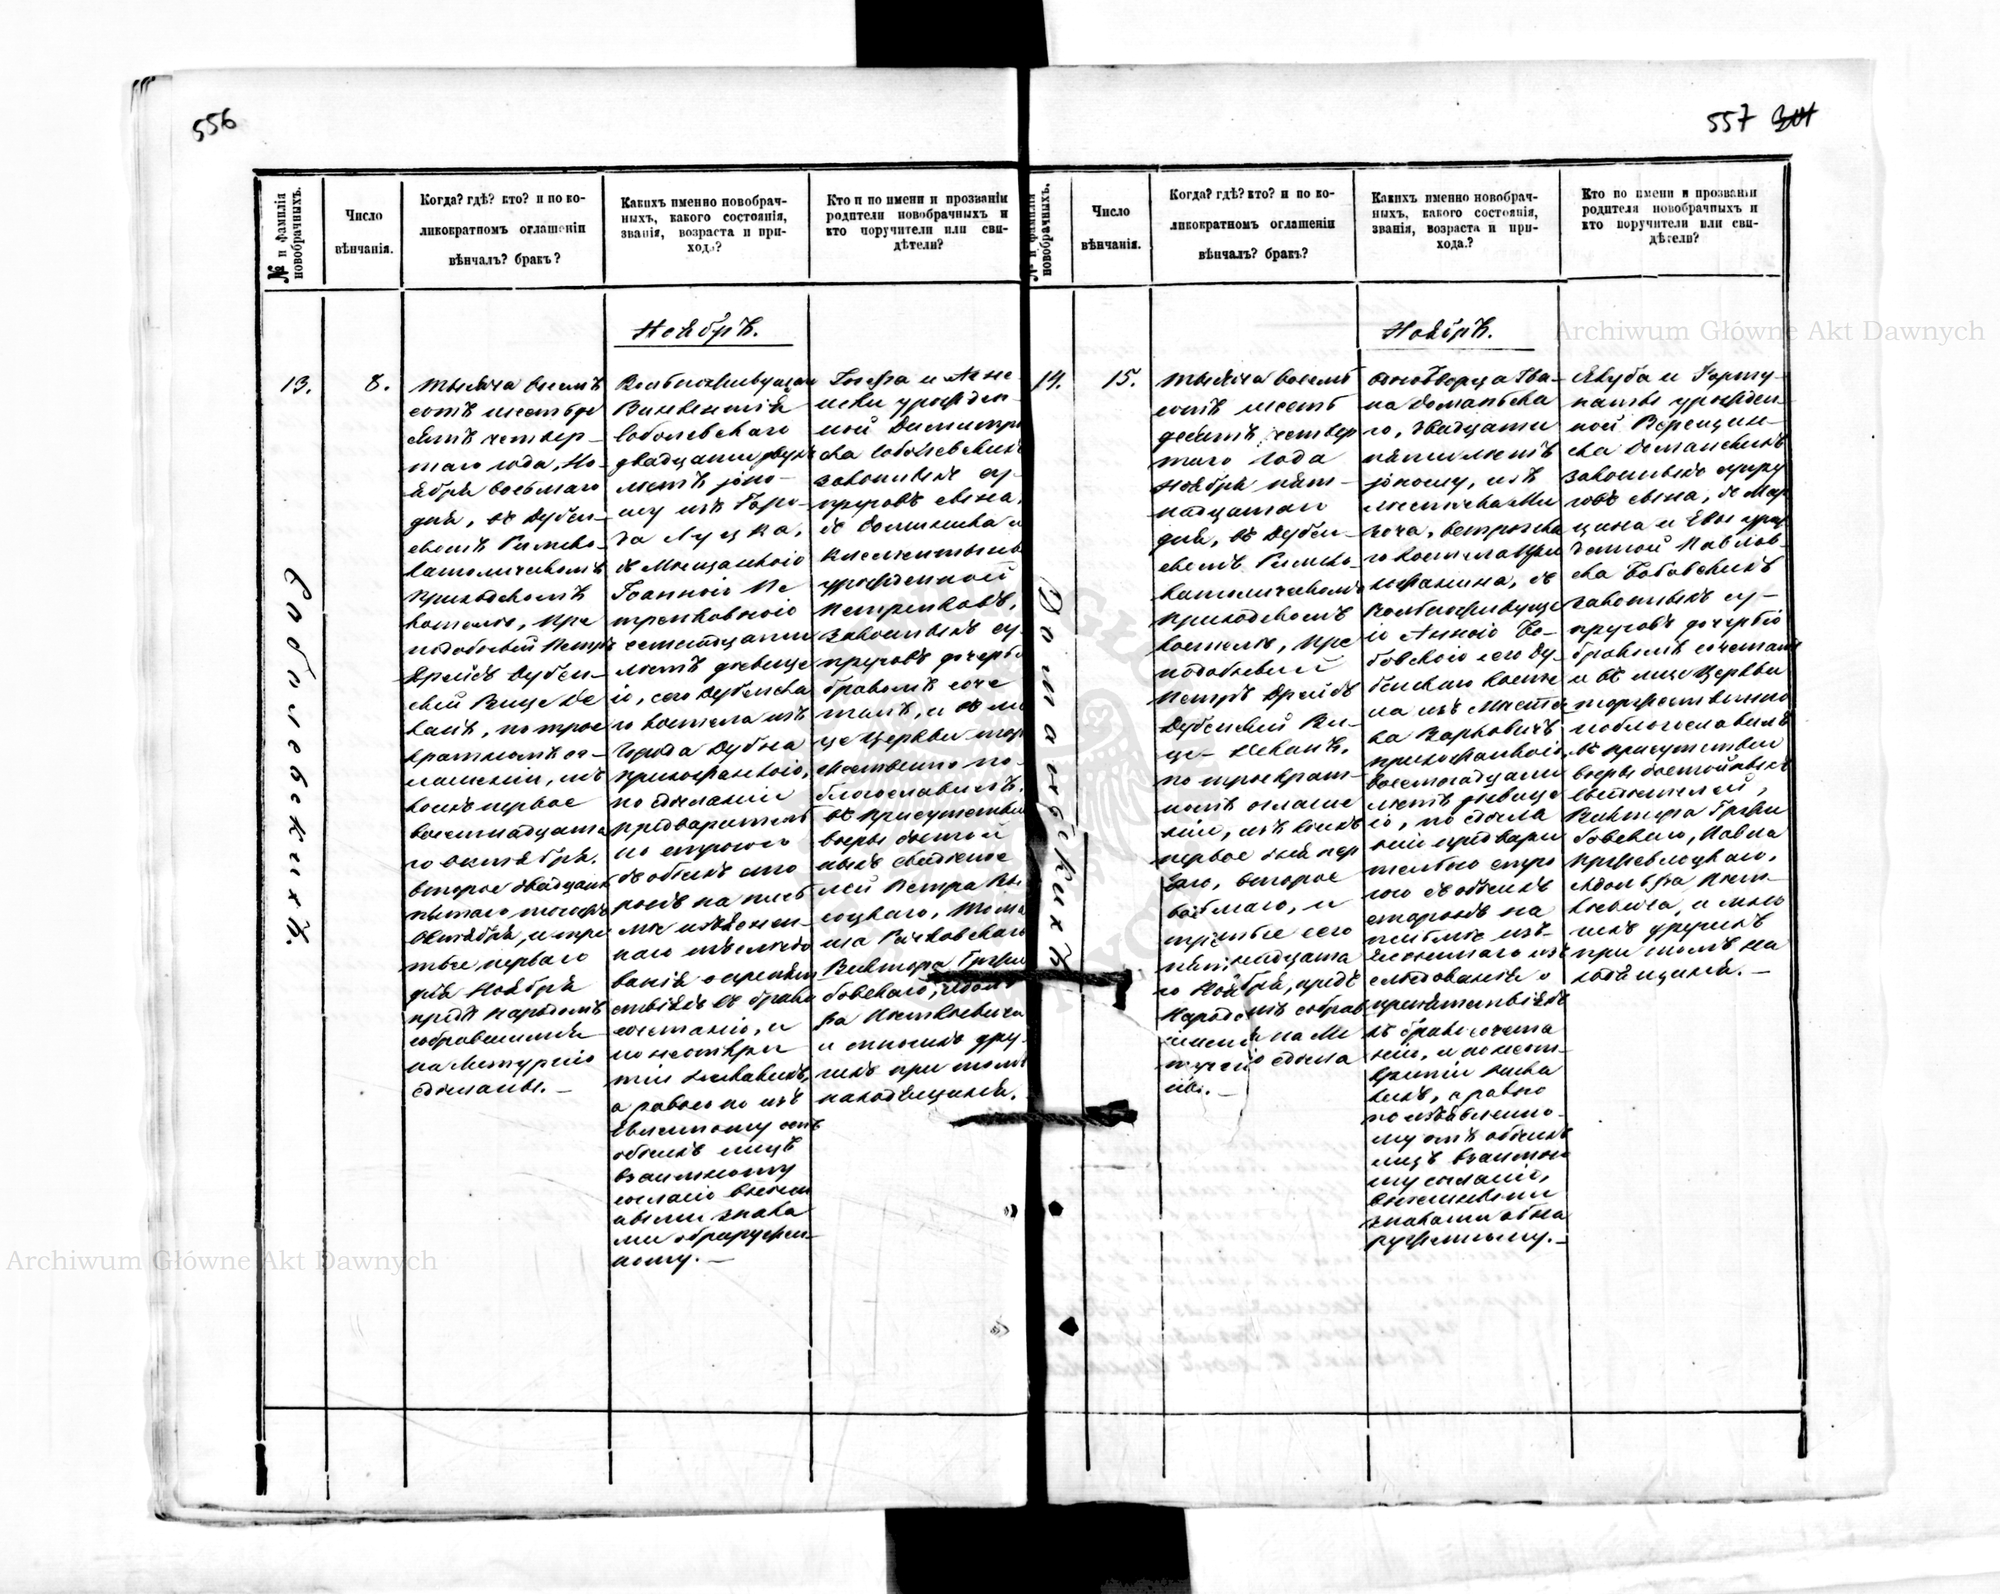 556
№ и фамилія новобрачныхъ.
Число вѣнчанія.
Когда? гдѣ? кто? и по ко-
ликократномъ оглашеніи
вѣнчалъ? бракъ?
Какихъ именно новобрач-
ныхъ, какого состоянія,
званія, возраста и при-
хода?
Кто и по имени и прозваніи
родители новобрачныхъ и
кто поручители или сви-
дѣтели?
Ноябрь.
13.
Соболевскихъ.
8.
тысяча восемь
сотъ шестьде
сятъ четвер-
таго года, Но-
ября восьмаго
дня, въ Дубен-
скомъ Римско-
католическомъ
приходскомъ
костелѣ, пре
подобный Петръ
Дрейсъ Дубен-
скій Вице Де
канъ, по трое
кратномъ ог-
лашеніи, изъ
коихъ первое
восемнадцата
го октября,
второе двадцать
пятаго тогожъ
Октября, и тре
тье перваго
дня Ноября
предъ народомъ
собравшимся
на Литургію
сдѣланы.—
Вольноживущаго
Викентія
Соболевскаго
двадцати двухъ
лѣтъ юно-
шу изъ Горо-
да Луцка,
съ Мѣщанкою
Іоанною Пе
тренковною
семнадцати
лѣтъ дѣвице
ю, сего Дубенска
го костела изъ
Города Дубна
прихожанкою,
по сдѣланіи
предваритель
но строгаго
съ обѣихъ сто
ронъ на пись
мѣ изъяснен-
наго изслѣдо
ванія о препят
ствіяхъ къ брако
сочетанію, и
по неоткры
тіи никакихъ,
а равно по изъ
явленному отъ
обѣихъ лицъ
взаимному
согласію внѣшн
ими знака
ми обнаружен-
ному.—
Іосифа и Агне-
шки урожден-
ной Димитро
ска Соболевскихъ
законныхъ су-
пруговъ сына,
съ Доминика и
Клементины
урожденной
Петренковъ,
законныхъ су-
пруговъ дочерью
бракомъ соче
талъ, и въ ли
це Церкви тор
жественно по-
благословилъ,
въ присутствіи
вѣры достой
ныхъ свидѣте
лей Петра Вы
соцкаго, Ѳома
ша Рачковскаго
Виктора Гржи
бовскаго, Адоль
фа Пеньковича
и многихъ дру-
гихъ при томъ
находящихся.
557
№ и фамилія новобрачныхъ.
Число
вѣнчанія.
Когда? гдѣ? кто? и по ко-
ликократномъ оглашеніи
вѣнчалъ? бракъ?
Какихъ именно новобрач-
ныхъ, какого состоянія,
званія, возраста и при-
хода?
Кто по имени и прозваніи
родителя новобрачныхъ и
кто поручители или сви-
дѣтели?
Ноябрь.
14.
Доманскихъ
15.
тысяча восемь
сотъ шесть
десятъ четвер
таго года
Ноября пят-
надцатаго
дня, въ Дубен-
скомъ Римско-
католическомъ
приходскомъ
костелѣ, пре
подобный
Петръ Дрейсъ
Дубенскій Ви-
це-Деканъ,
по троекрат-
номъ оглаше
ніи, изъ коихъ
первое дня пер
ваго, второе
восьмаго, и
третье сего
пятнадцата
го Ноября, предъ
Народомъ собрав
шимся на Ли
тургію сдѣла
ны.—
однодворца Ива-
на Доманска
го, двадцати
пяти лѣтъ
юношу, изъ
мѣстечка Ми
зоча, Острожска
го костела при
хожанина, съ
вольноживуще
ю Анною Бо-
бовскою сего Ду-
бенскаго косте
ла изъ мѣстеч
ка Варковичъ
прихожанкою,
восемнадцати
лѣтъ дѣвице
ю, по сдѣла
ніи предвари
тельно стро
гаго съ обѣихъ
сторонъ на
письмѣ изъ-
ясненнаго изъ
слѣдованія о
препятствіяхъ
къ бракосочета
нію, и по неот-
крытіи ника
кихъ, а равно
по изъявленно-
му отъ обѣихъ
лицъ взаимно
му согласію,
внѣшними
знаками обна
руженному.—
Якуба и
урожден-
ной
Доманскихъ
законныхъ супру
говъ сына, съ Мар
цина и Евы урож
денной Павлов-
ска Бобовскихъ
законныхъ су-
пруговъ дочерью
бракомъ сочеталъ
и въ лице Церкви
торжественно
поблагословилъ
въ присутствіи
вѣры достойныхъ
свидѣтелей,
Виктора Гржи
бовскаго, Павла
Адольфа Пень-
ковича, и мно
гихъ другихъ
при томъ на
ходящихся.—
Archiwum Główne Akt Dawnych
Archiwum Główne Akt Dawnych